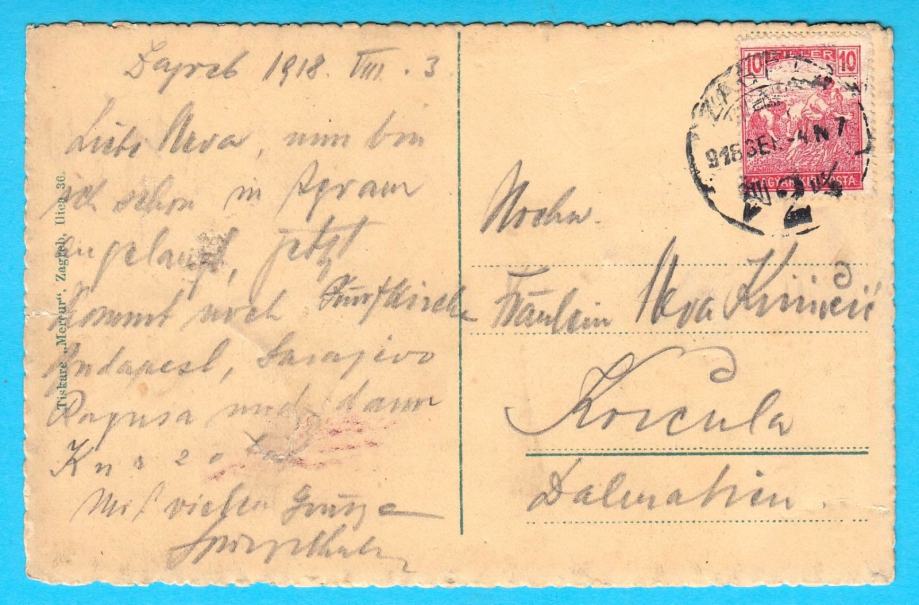 Zagreb 1918 VIII . 3
Liebe Neva, nun bin
ich schon in Agram
angelangt, jetzt
kommt noch Fünfkirchen
Budapest, Sarajevo
Ragusa und dann
Mit vielen Grüße
Tiskare „Merkur“, Zagreb, Ilica 36.
10 FILLER 10
MAGYAR KIR. POSTA
918 SE
Fräulein Neva
Korcula
Dalmatien